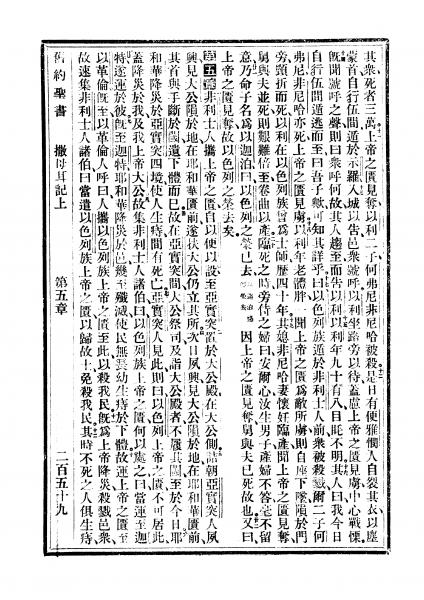 其衆死者三萬上帝之匱見奪以利二子何弗尼非尼哈被殺是日有便雅憫人自裂其衣以塵
蒙首自行伍間遁於示羅入城以告邑衆號呼以利坐路旁以待蓋慮上帝之匱見虜中心戰慄
既聞號呼之聲則曰衆呼何故其人趨至而告以利以利年九十有八目眊不明其人曰我今日
自行伍間遁逃而至曰吾子歟可知其詳乎曰以色列族遁於非利士人前衆被殺戮爾二子何
弗尼非尼哈亦死上帝之匱見虜以利年老體胖一聞上帝之匱爲敵所虜則自座下墜隕於門
旁頸折而死以利在以色列族曾爲士師歷四十年其媳非尼哈妻懷妊臨產聞上帝之匱見奪
舅與夫並死則艱難倍至卷曲以產臨死之時旁侍之婦曰安爾心汝生男子產婦不答毫不留
意乃命子名爲以迦泊曰以色列之榮已去因上帝之匱見奪舅與夫已死故也又曰
上帝之匱見奪故以色列之榮去矣
第五章非利士人攜上帝之匱自以便以設至亞實突置於大公殿在大公側詰朝亞實突人夙
興見大公隕於地在耶和華匱前遂扶大公仍立其所次日夙興見大公隕於地在耶和華匱前
其首與手斷於閾遺下體而已故在亞實突間大公祭司及詣大公殿者不履其閾至於今日耶
和華降災於亞實突四境使人生痔間有死亡亞實突人見此則曰以色列族上帝之匱不可居此
蓋降災於我及我上帝大公故集非利士人諸伯曰以色列族上帝之匱何以處之曰當運至迦
特遂運於彼既至迦特耶和華降災於邑幾至殲滅使民無耋幼生痔於下體故運上帝之匱至
以革倫既至以革倫人呼曰人攜以色列族上帝之匱至此以殺我民既爲上帝降災殺戮邑衆
故速集非利士人諸伯曰當遣以色列族上帝之匱以歸故土免殺我民其時不死之人俱生痔
舊約聖書 撒母耳記上 第五章 二百五十九